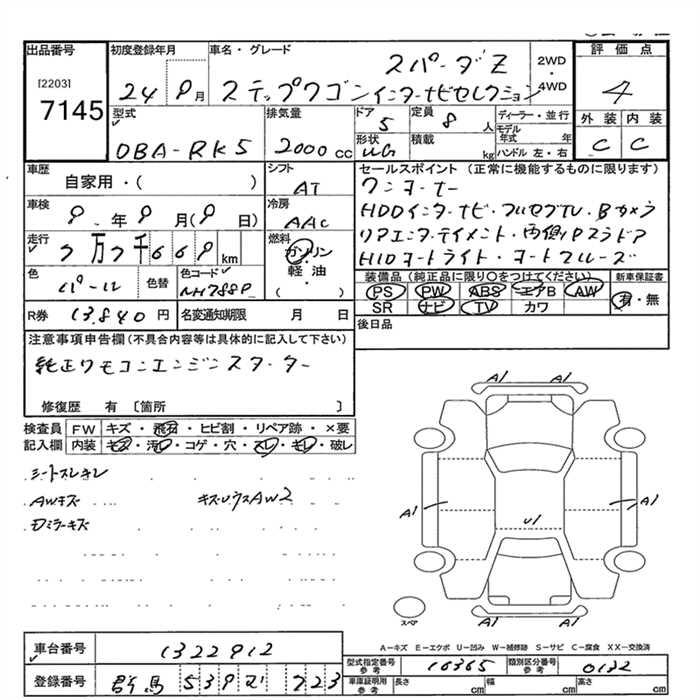 出品番号 初度登録年月 車名・グレード 評価点
[2203] 7145
24 9月
スパーダZ
ステップワゴンインターナビセレクション
2WD・4WD
4
型式 排気量 ドア 定員 ディーラー・並行 外装 内装
DBA-RK5 2000cc 5 8人 モデル年式 年 C C
形状 積載 kg ハンドル 左・右
車歴 シフト セールスポイント (正常に機能するものに限ります)
自家用・( ) AT
ワンオーナー
車検 冷房
9年9月(9日) AAC
HDDインターナビ・フルセグTV・Bカメラ
リアエンターテイメント・両側Pスラドア
HIDオートライト・オートクルーズ
走行 燃料
7万7千669km ガソリン・軽油・( )
色 色替 色コード
パール NH788P
装備品 (純正品に限り○をつけてください) 新車保証書
PS PW ABS エアB AW 有・無
SR ナビ TV カワ
R券 13,840円 名変通知期限 月 日 後日品
注意事項申告欄 (不具合内容等は具体的に記入して下さい)
純正リモコンエンジンスターター
修復歴 有 [箇所 ]
検査員 FW キズ・飛石・ヒビ割・リペア跡・×要
記入欄 内装 キズ・汚レ・コゲ・穴・スレ・キレ・破レ
シートスレキレ
AWキズ キズUウスAW2
Dミラーキズ
A1 A1
A1 U1 A1
A1 A1
スペア
A-キズ E-エクボ U-凹み W-補修跡 S-サビ C-腐食 XX-交換済
車台番号 1322912
型式指定番号 参考 16365 類別区分番号 参考 0132
登録番号 群馬 539 723
車庫証明用 参考 長さ cm 幅 cm 高さ cm